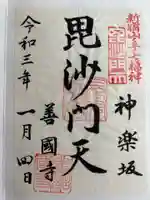 新宿山ノ手七福神
神楽坂
毘沙門天
善國寺
令和三年
一月四日